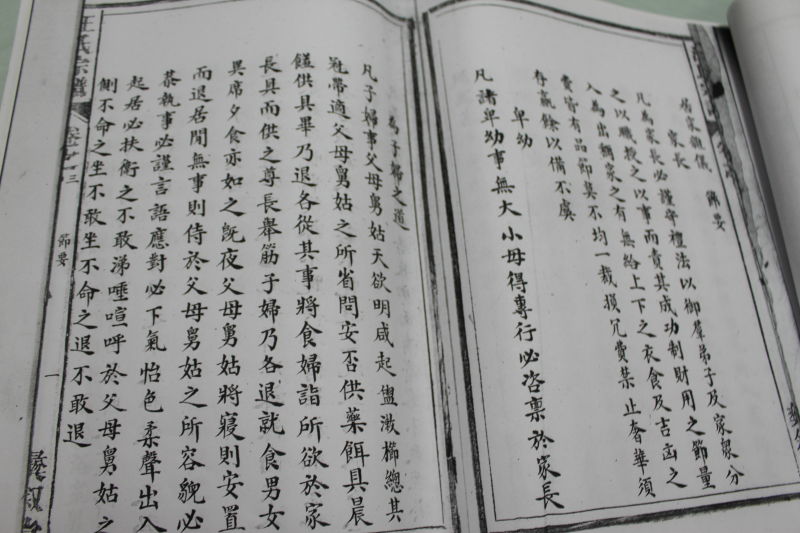 居家雜儀 節要
家長
凡為家長必謹守禮法以御羣弟子及家眾分
之以職授之以事而責其成功制財用之節量
入為出稱家之有無給上下之衣食及吉凶之
費皆有品節莫不均一裁損冗費禁止奢華須
存贏餘以備不虞
卑幼
凡諸卑幼事無大小毋得專行必咨禀於家長
為子婦之道
凡子婦事父母舅姑天欲明咸起盥漱櫛總具
冠帶適父母舅姑之所省問安否供藥餌具晨
饈供具畢乃退各從其事將食婦詣所欲於家
長具而供之尊長舉筯子婦乃各退就食男女
異席夕食亦如之既夜父母舅姑將寢則安置
而退居閒無事則侍於父母舅姑之所容貌必
恭執事必謹言語應對必下氣怡色柔聲出入
起居必扶衛之不敢涕唾喧呼於父母舅姑之
側不命之坐不敢坐不命之退不敢退
汪氏宗譜
節要
一